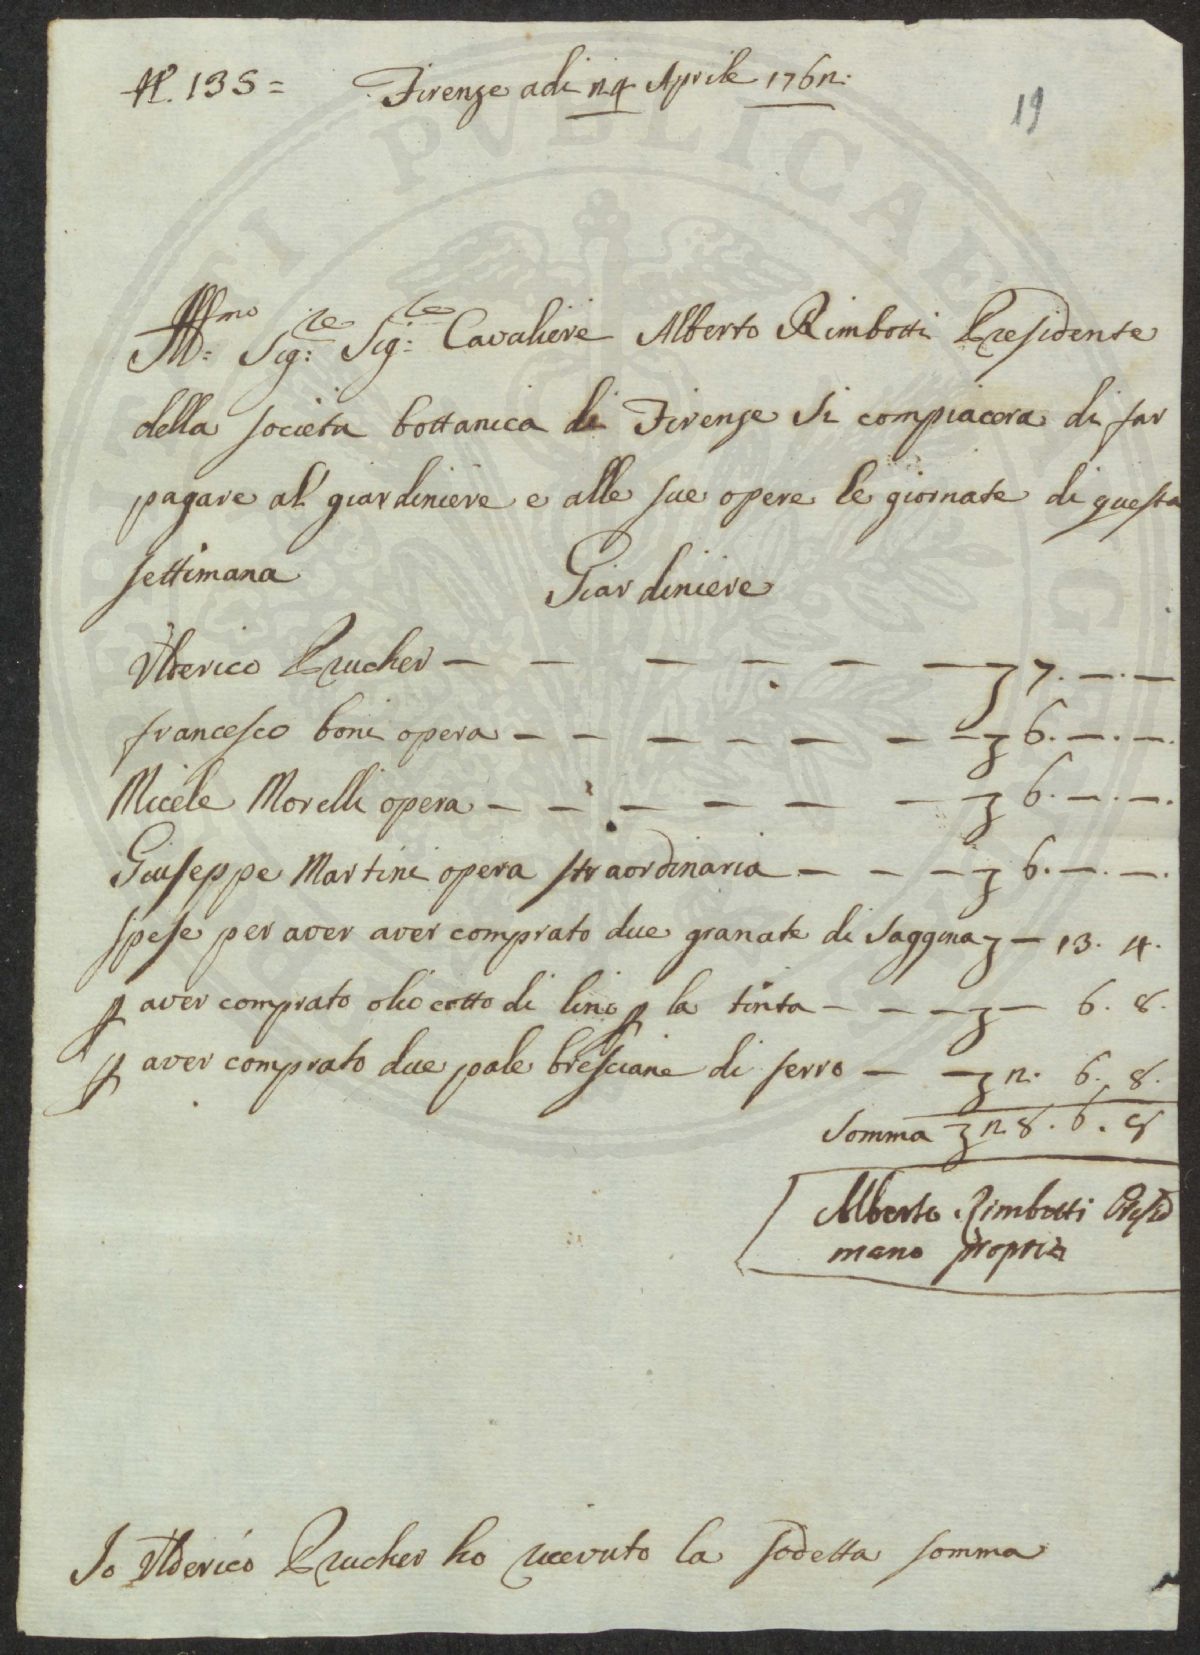 N. 135 = Firenze adi 24 Aprile 1762.
19
Ill:mo Sig:re Sig:re Cavaliere Alberto Rimbotti Presidente
della societa bottanica di Firenze si compiacera di far
pagare al' giardiniere e alle sue opere le giornate di questa
settimana Giardiniere
Ulderico Prucher — — — — — — 7. —. —
francesco boni opera — — — — — — — 6. —. —.
Micele Morelli opera — — — — — — 6. —. —.
Giuseppe Martini opera straordinaria — — — 6. —. —.
spese per aver aver comprato due granate di saggina — 13. 4.
p aver comprato olio cotto di lino p la tinta — — — — 6. 8.
p aver comprato due pale bresciane di ferro — — 2. 6. 8.
Somma 28. 6. 8
Alberto Rimbotti Presid
mano propria
Io Ulderico Prucher ho ricevuto la sodetta somma